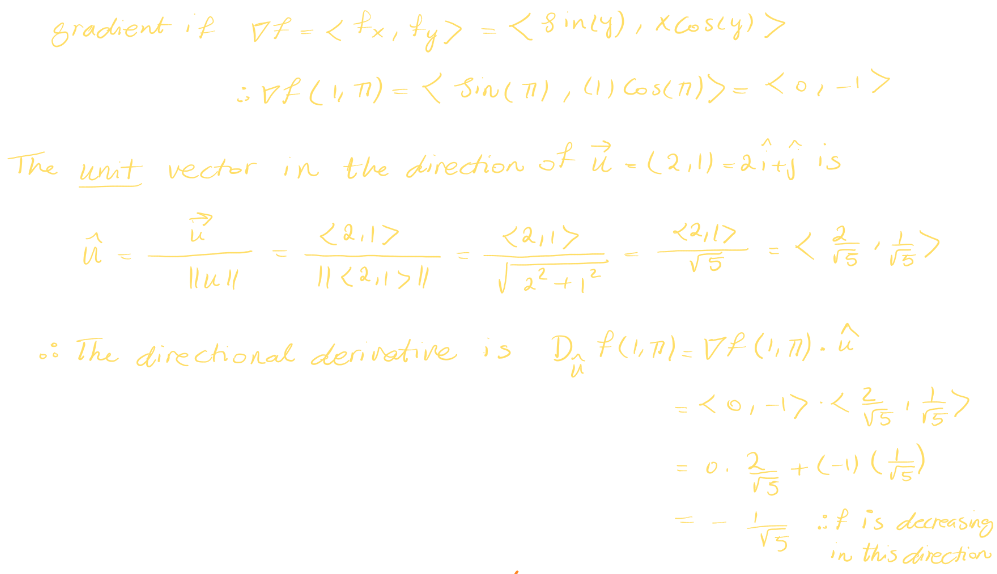 gradient if ∇f = < fx, fy > = < sin(y), x cos(y) >
∴ ∇f(1, π) = < sin(π), (1) cos(π) > = < 0, -1 >
The unit vector in the direction of u⃗ = (2,1) = 2î+ĵ is
û = u⃗ / ||u|| = <2,1> / ||<2,1>|| = <2,1> / √(2² + 1²) = <2,1> / √5 = < 2/√5, 1/√5 >
∴ The directional derivative is D_û f(1,π) = ∇f(1,π) · û
= <0, -1> · < 2/√5, 1/√5 >
= 0 · 2/√5 + (-1)(1/√5)
= - 1/√5 ∴ f is decreasing
in this direction